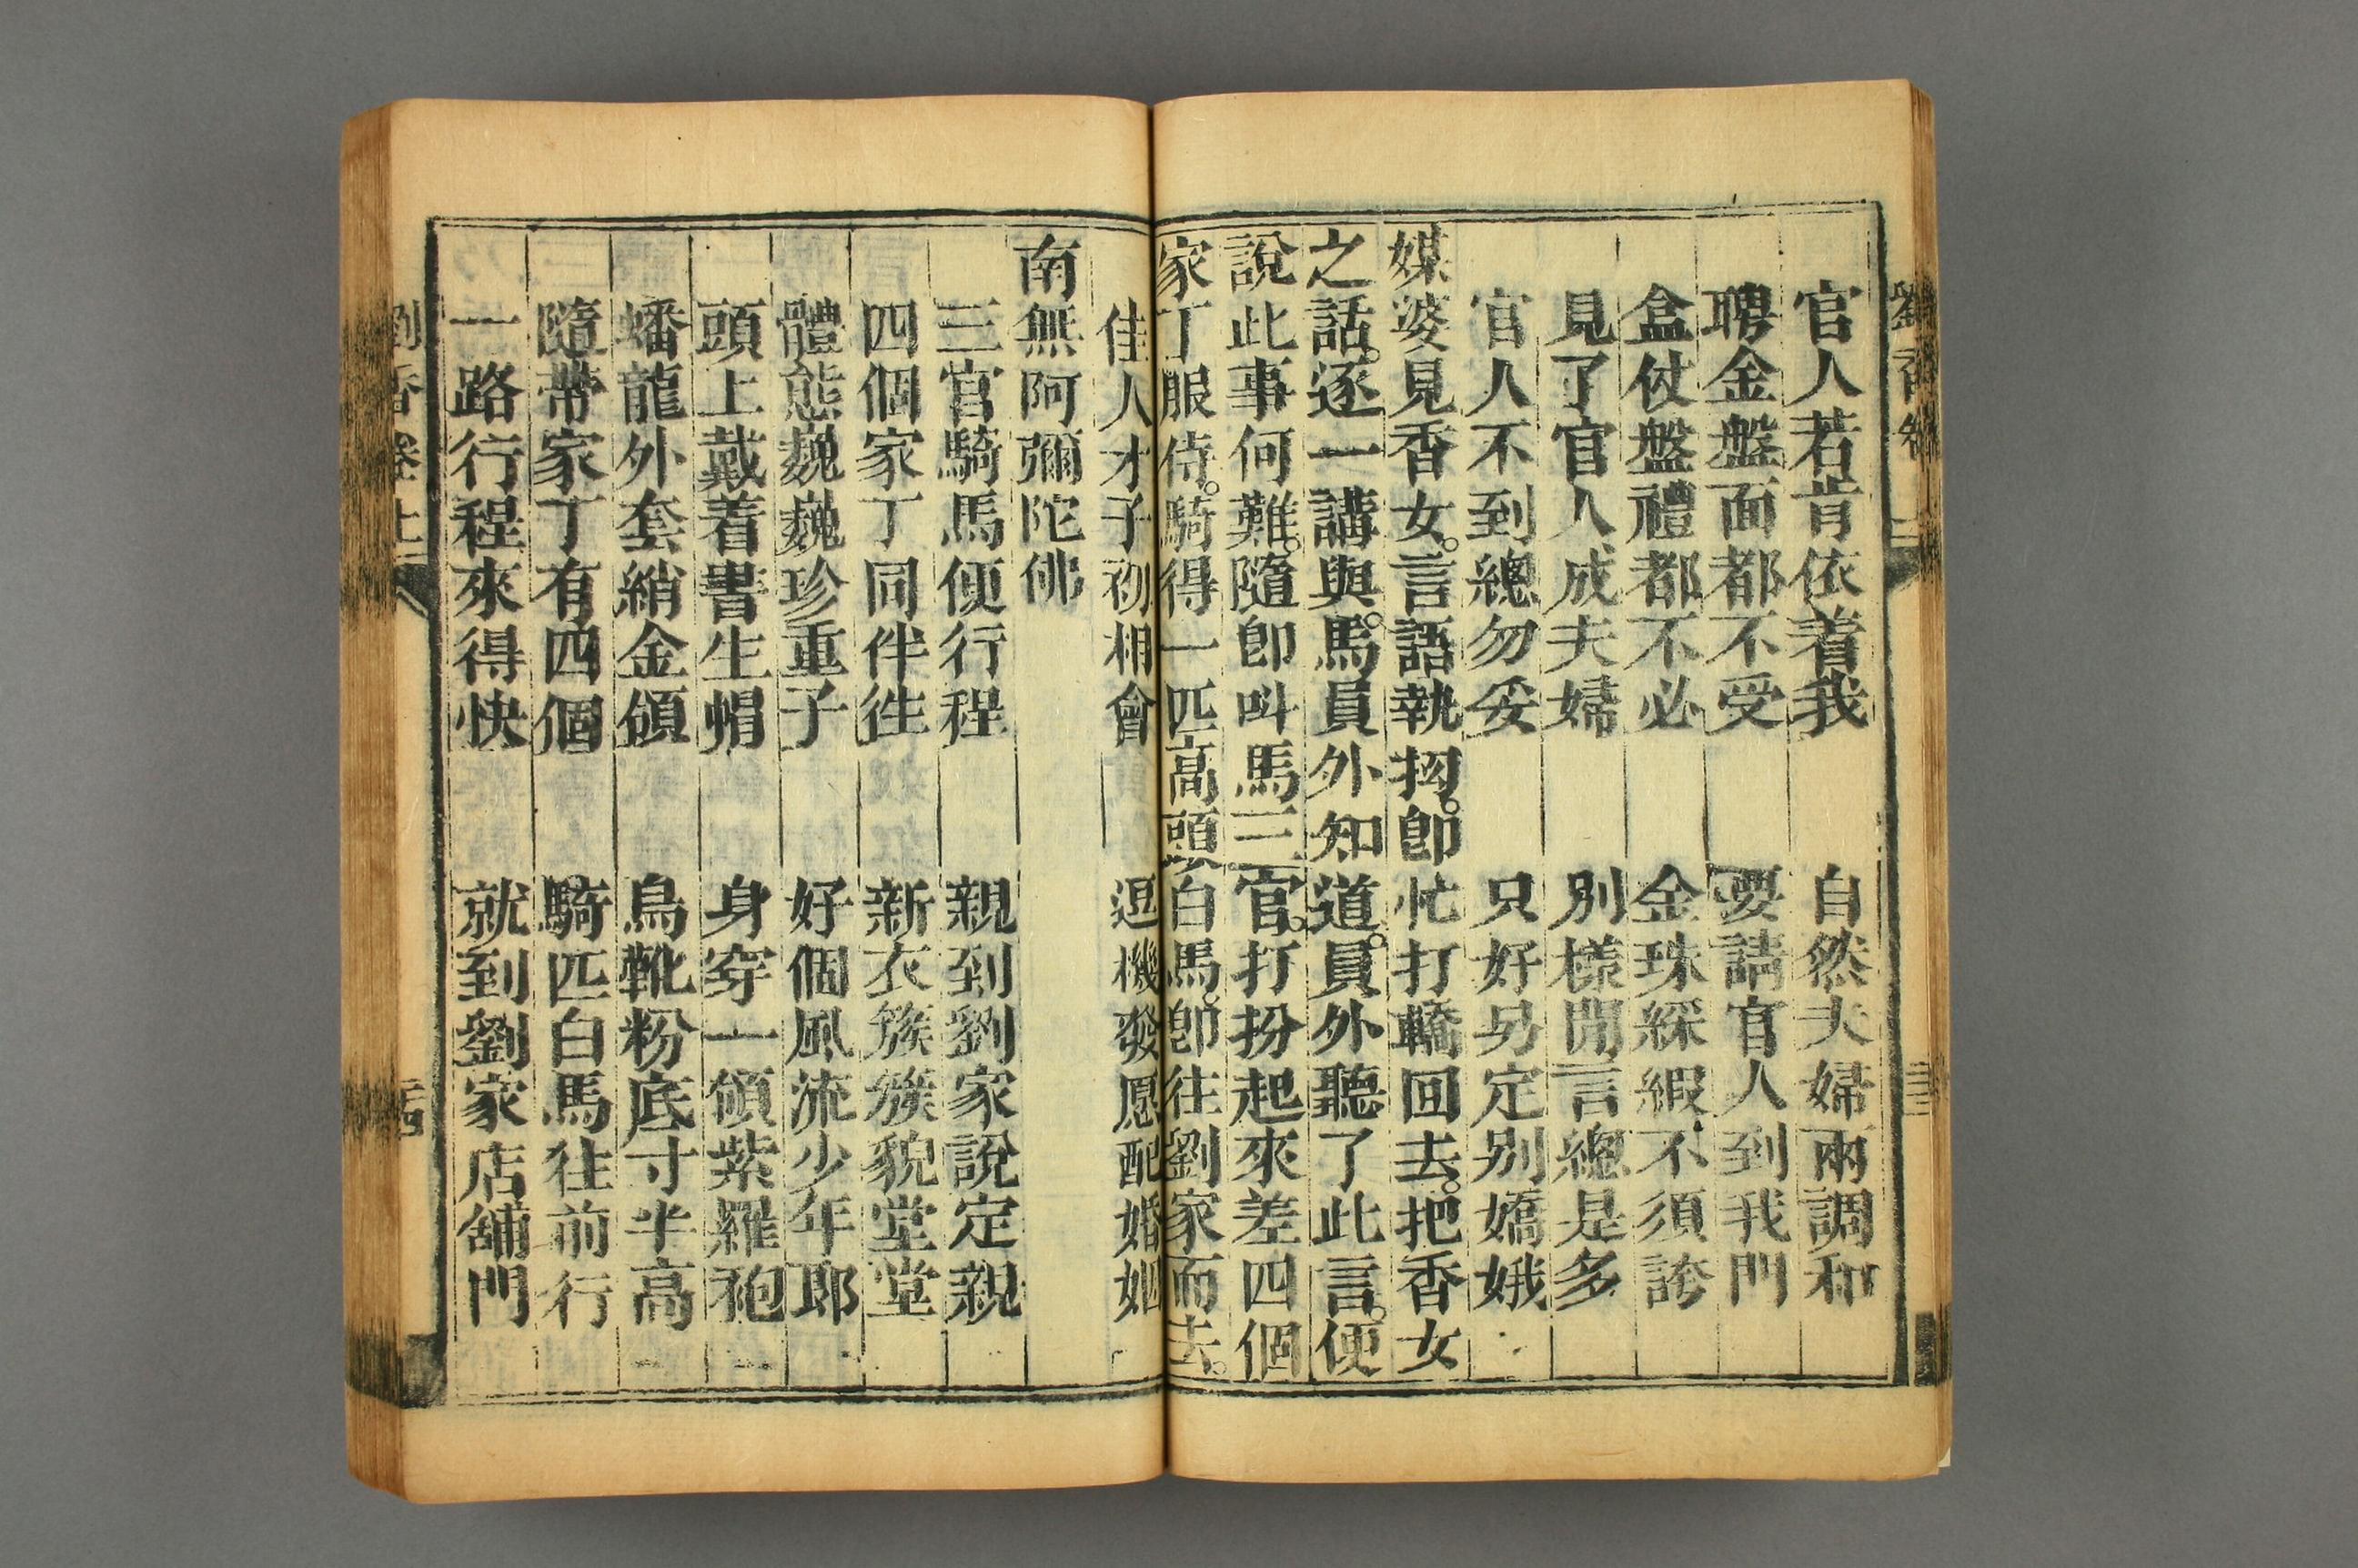 官人若肯依着我　自然夫婦兩調和
聘金盤面都不受　要請官人到我門
盒仗盤禮都不必　金珠綵緞不須誇
見了官人成夫婦　別樣閒言總是多
官人不到總勿妥　只好另定別嬌娥
媒婆見香女。言語執拗。卽忙打轎回去。把香女
之話。逐一講與。馬員外知道。員外聽了此言。便
說此事何難。隨卽叫馬三官。打扮起來差四個
家丁服侍。騎得一匹高頭白馬。卽往劉家而去。
佳人才子初相會　逗機發愿配婚姻
南無阿彌陀佛
三官騎馬便行程　親到劉家說定親
四個家丁同伴徃　新衣簇簇貌堂堂
體態巍巍珍重子　好個風流少年郎
頭上戴着書生帽　身穿一領紫羅袍
蟠龍外套綃金領　烏靴粉底寸半高
隨帶家丁有四個　騎匹白馬徃前行
一路行程來得快　就到劉家店舖門
劉香卷上